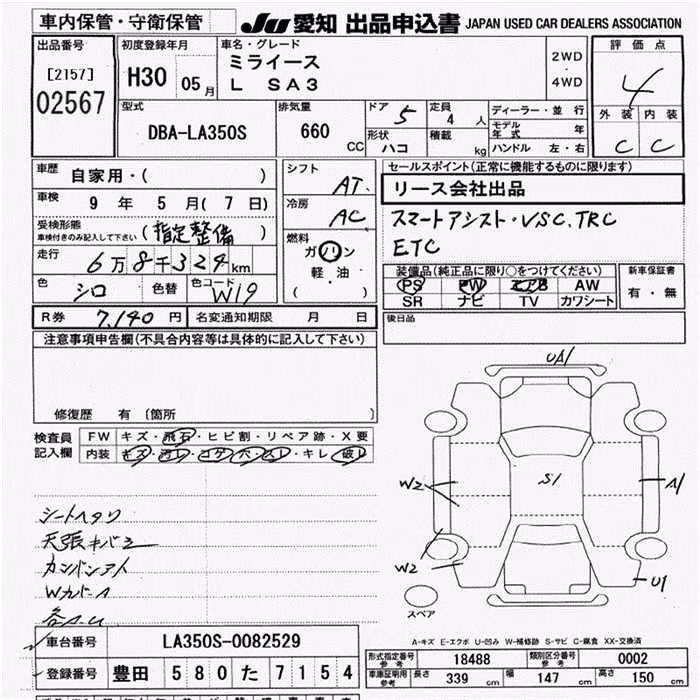 車内保管・守衛保管
JU 愛知 出品申込書 JAPAN USED CAR DEALERS ASSOCIATION
出品番号
[2157]
02567
初度登録年月
H30 05月
車名・グレード
ミライース
L SA3
2WD
・
4WD
評価点
4
外装 内装
C C
型式
DBA-LA350S
排気量
660 CC
ドア 5
定員 4 人
形状 ハコ
積載 kg
ディーラー・並行
モデル年式 年
ハンドル 左・右
車歴 自家用・( )
車検 9年 5月(7日)
受検形態
車検付きのみ記入して下さい (指定整備)
走行 6万8千324km
色 シロ 色替 色コード W19
シフト AT
冷房 AC
燃料
ガソリン
軽・油
( )
セールスポイント(正常に機能するものに限ります)
リース会社出品
スマートアシスト・VSC.TRC
ETC
装備品(純正品に限り○をつけてください)
PS PW エアB AW
SR ナビ TV カワシート
新車保証書
有・無
R券 7,140円
名変通知期限 月 日
後日品
注意事項申告欄(不具合内容等は具体的に記入して下さい)
修復歴 有〔箇所
検査員記入欄
FW キズ・飛石・ヒビ割・リペア跡・X要
内装 キズ・汚レ・コゲ・穴・スレ・キレ・破レ
シートヘタリ
天張キバミ
W2
W2
UA1
S1
A1
U1
スペア
A-キズ E-エクボ U-凹み W-補修跡 S-サビ C-腐食 XX-交換済
車台番号 LA350S-0082529
登録番号 豊田 580 た 7154
形式指定番号 参考 18488
類別区分番号 参考 0002
車庫証明用 参考 長さ 339 cm 幅 147 cm 高さ 150 cm